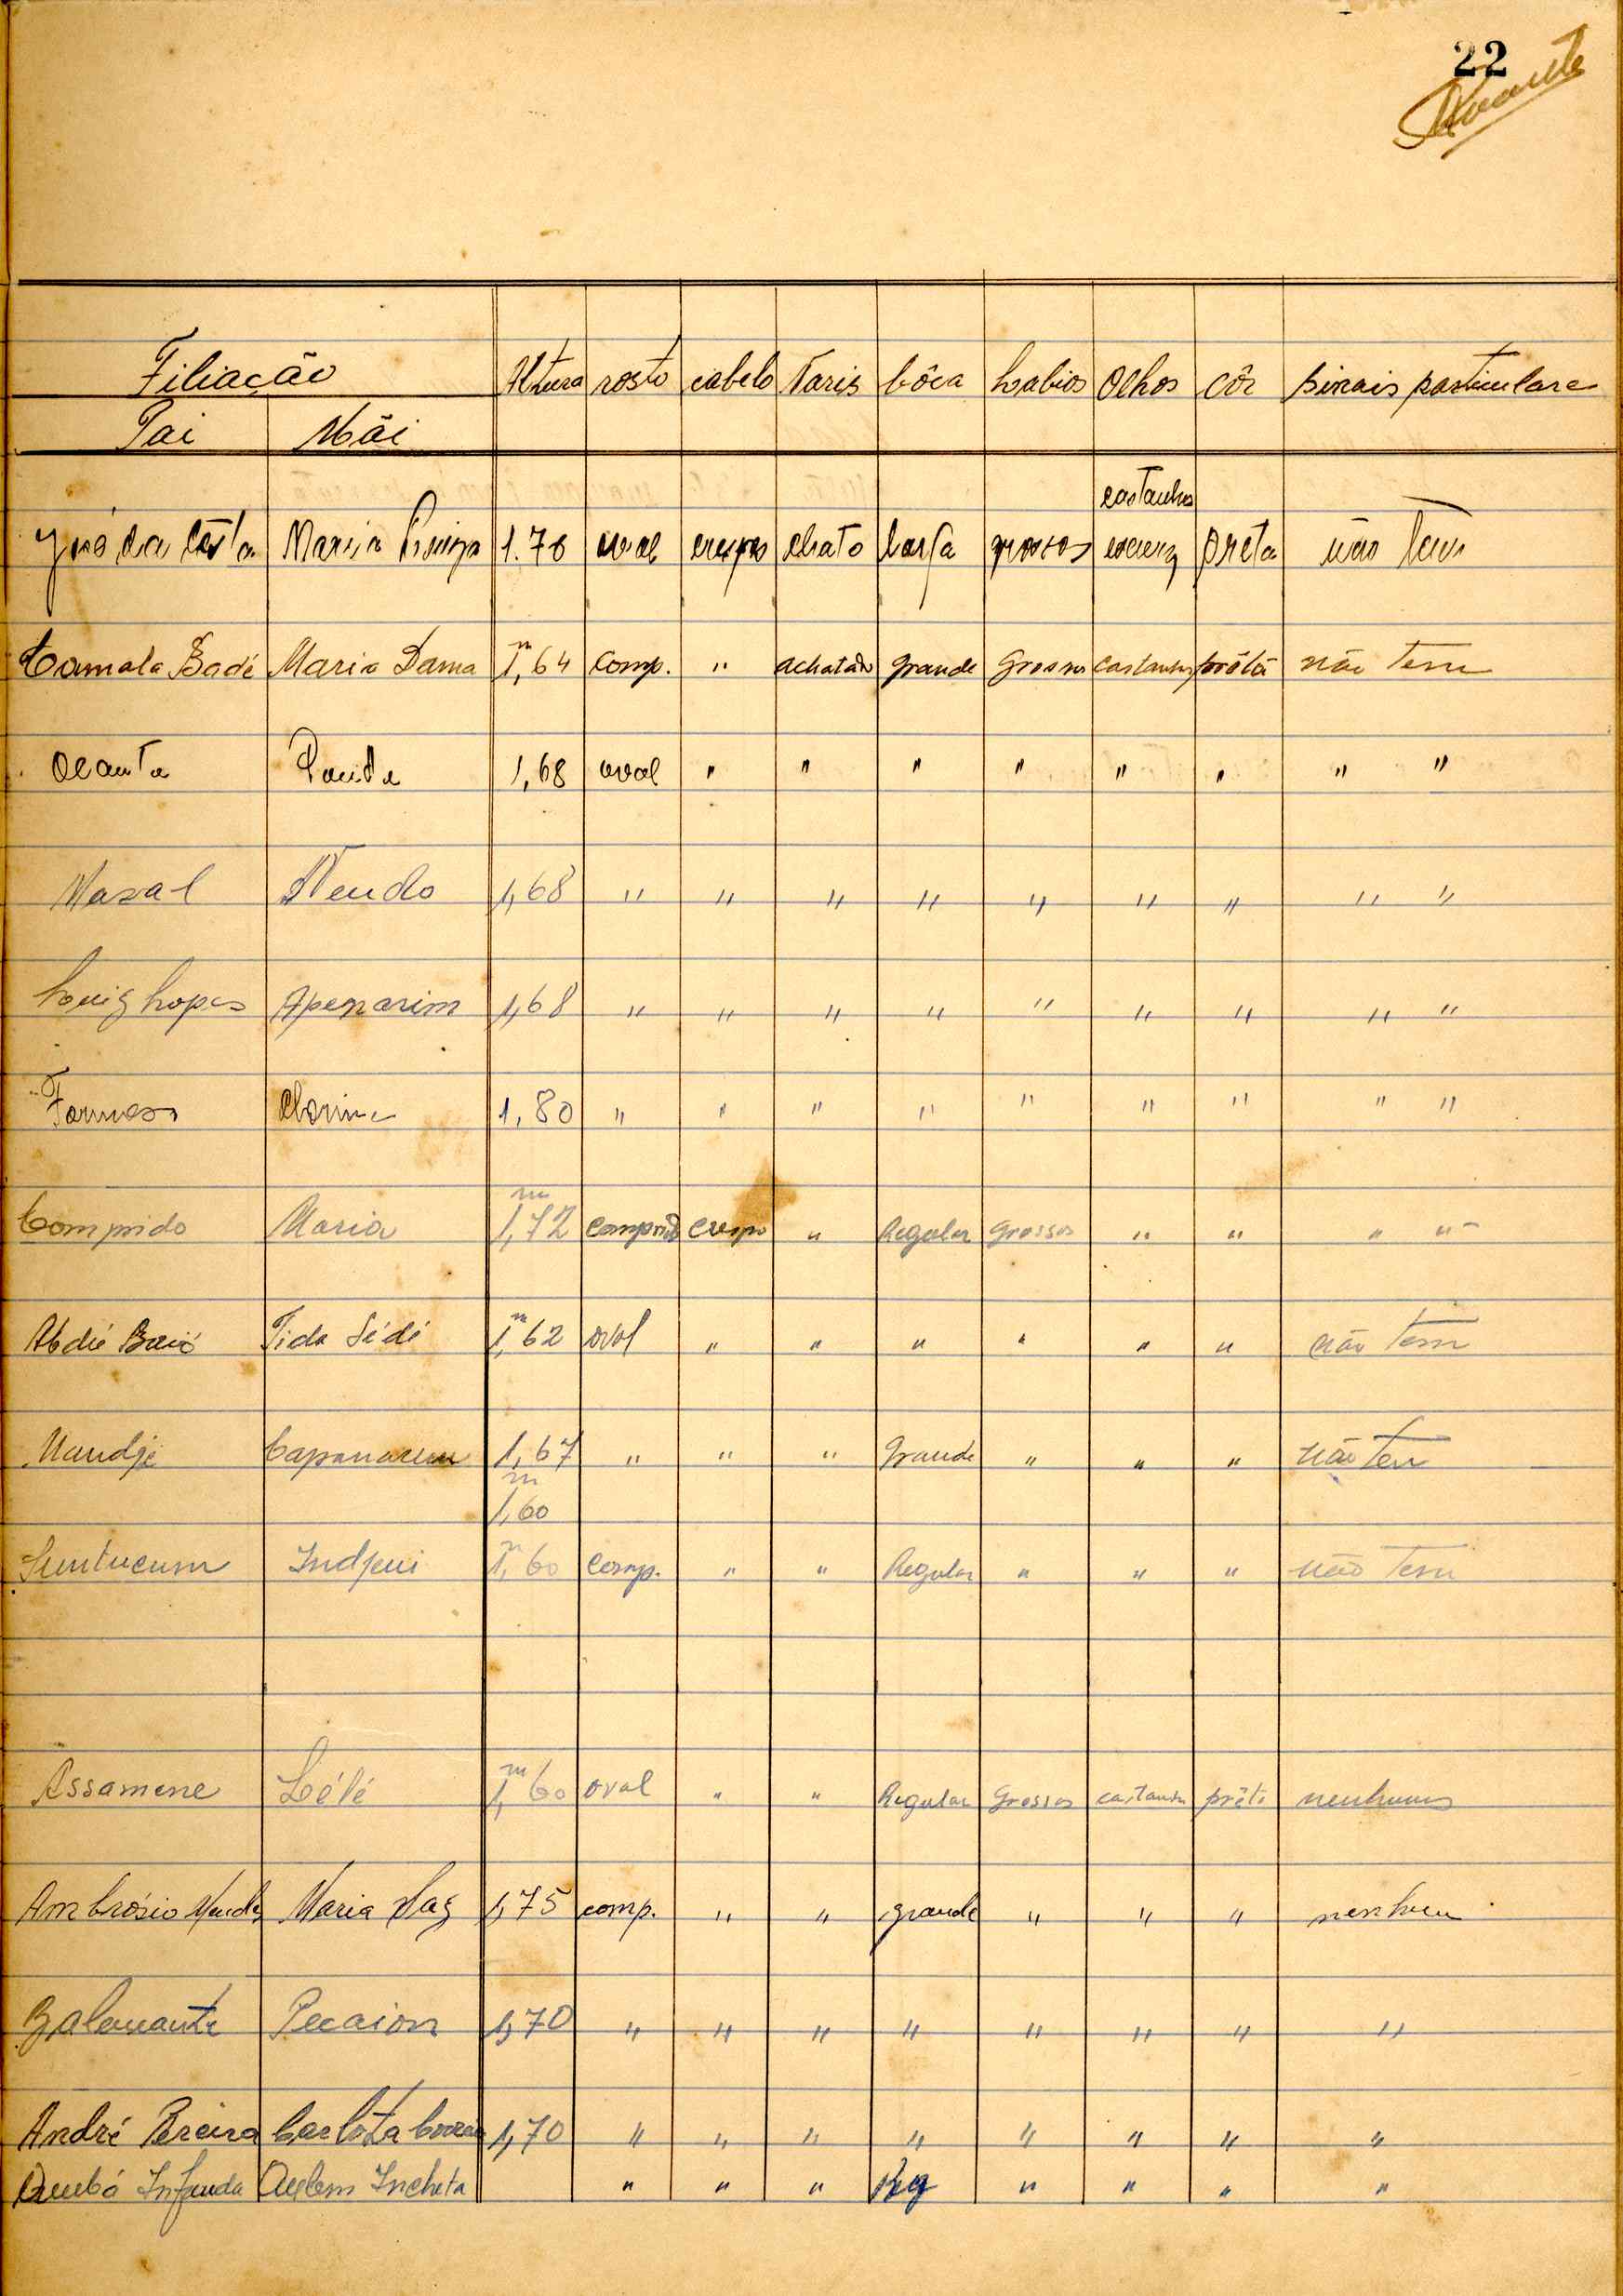 22
Filiação Altura rosto cabelo Naris bôca Labios Olhos côr sinais particulare
Pai Mãi
castanhos
José da Costa Maria 1.70 oval crespos chato larga grossos escuros preta não tem
Camala Badé Maria Dama 1,64 m comp. " achatado grande Grossos castanhos prêta não tem
1,68 oval " " " " " " " "
Nasal 1,68 " " " " " " " " "
Luiz Lopes Apenarim 1,68 " " " " " " " " "
1,80 " " " " " " " " "
Comprido Maria 1,72 m comprido crespo " Regular Grossos " " " "
Abdú Baió Tida Sédi 1,62 m oval " " " " " " não tem
Mandje Capanarem 1,67 " " " Grande " " " não tem
m
1,60
Suntucum Indjeui 1,60 m comp. " " Regular " " " não tem
Assamene Lélé 1,60 m oval " " Regular Grossos castanho prêta nenhuns
Ambrósio Mendes Maria Vaz 1,75 comp. " " grande " " " nenhum
Balemante Pecaion 1,70 " " " " " " " "
André Pereira Carlota Correia 1,70 " " " " " " " "
Infanda Incheta " " " Reg " " " "